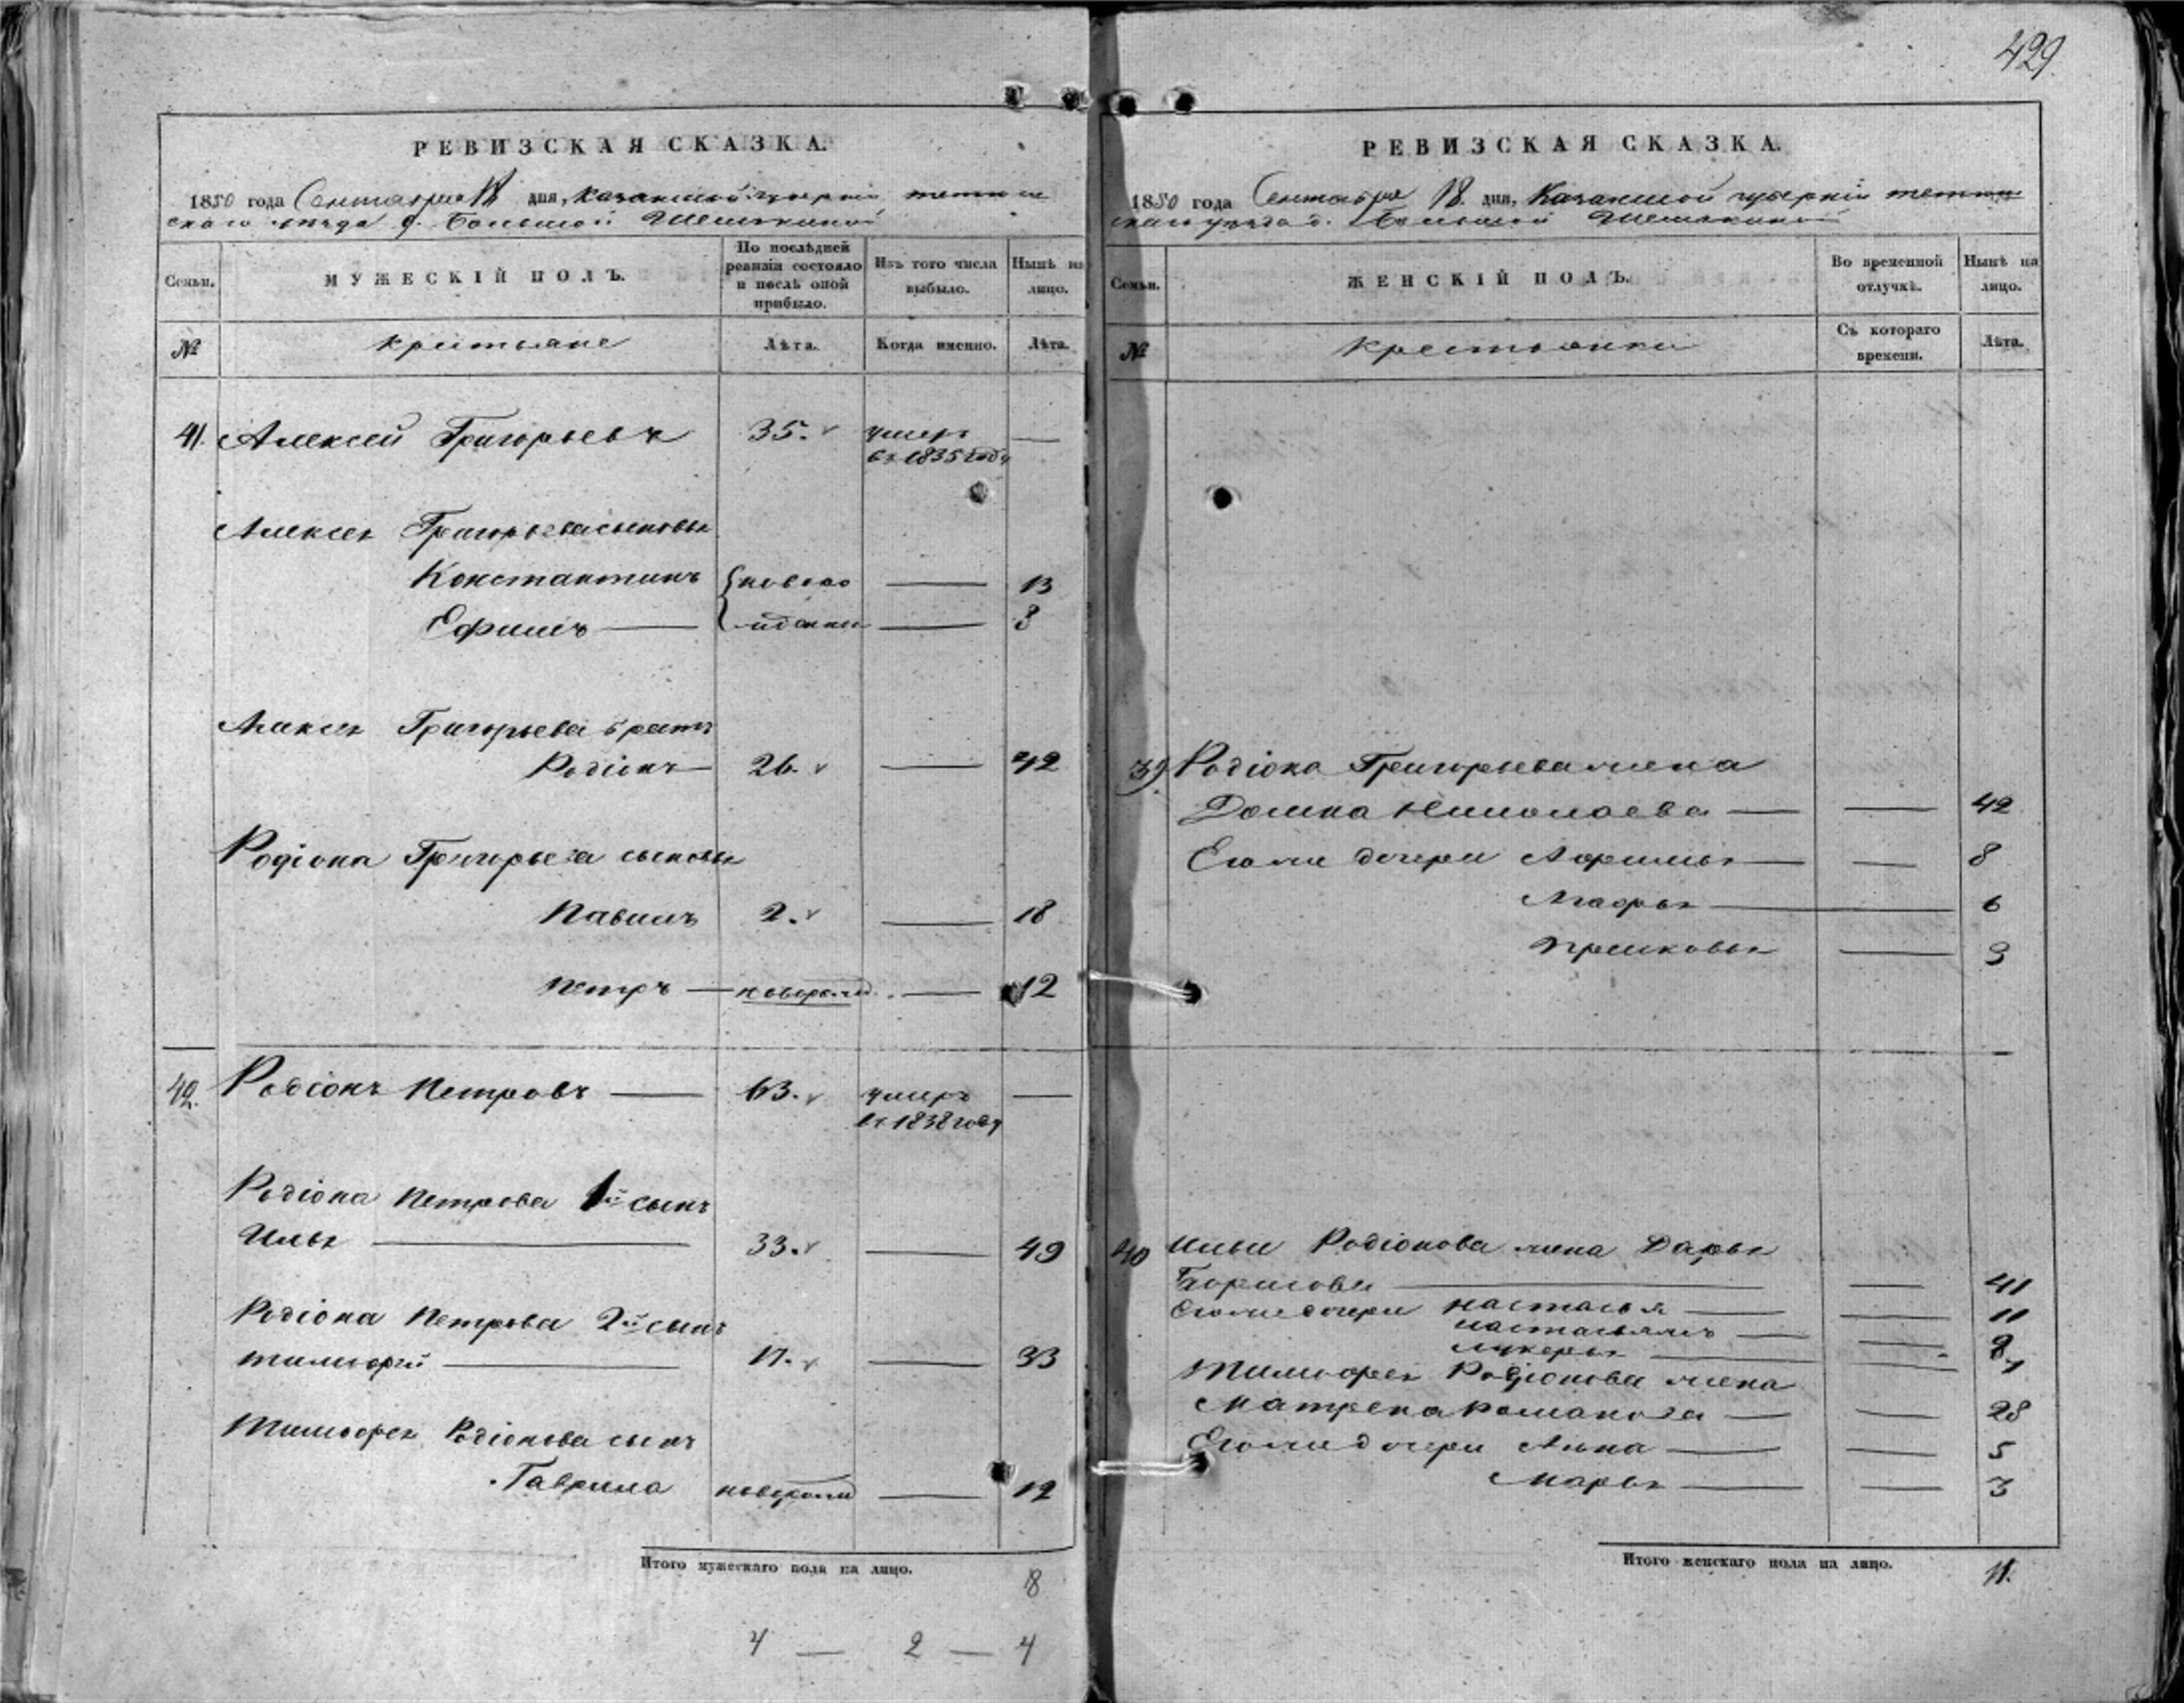 429
РЕВИЗСКАЯ СКАЗКА.
1850 года Сентября 18 дня, Казанской губерніи тетюш
скаго уѣзда д. Большой Шемякиной
Семьи.
МУЖЕСКІЙ ПОЛЪ.
По послѣдней ревизіи состояло и послѣ оной прибыло.
Изъ того числа выбыло.
Нынѣ на лицо.
№
крестьяне
Лѣта.
Когда именно.
Лѣта.
41. Алексей Григорьевъ 35. умеръ —
въ 1835 году
Алексея Григорьева сыновья
Константинъ новоро — 13
Ефимъ — жденны — 8
Алексея Григорьева братъ
Родіонъ 26. — 42
Родіона Григорьева сыновья
Павилъ 2. — 18
петръ — новорожд. — 12
42. Родіонъ Петровъ — 63. умеръ —
въ 1838 году
Родіона петрова 1й сынъ
Илья — 33. — 49
Родіона петрова 2й сынъ
тимофей — 17. — 33
Тимофея Родіонова сынъ
Гаврила новорожд — 12
Итого мужескаго пола на лицо. 8
4 — 2 — 4
РЕВИЗСКАЯ СКАЗКА.
1850 года Сентября 18. дня, Казанской губерніи тетюш
скаго уѣзда д. Большой Шемякиной
Семьи.
ЖЕНСКІЙ ПОЛЪ.
Во временной отлучкѣ.
Нынѣ на лицо.
№
крестьянки
Съ котораго времени.
Лѣта.
39. Родіона Григорьева жена
Домна Николаева — — 42
Его же дочери Афимья — — 8
Мафрья — 6
прасковья — 3
40 Ильи Родіонова жена Дарья
Борисова — — 41
Его же дочери настасья — — 11
настасья жъ — — 8
лукерья — — 1
Тимофея Родіонова жена
Матрена Романова — — 28
Его же дочери Анна — — 5
Марья — — 3
Итого женскаго пола на лицо. 11.